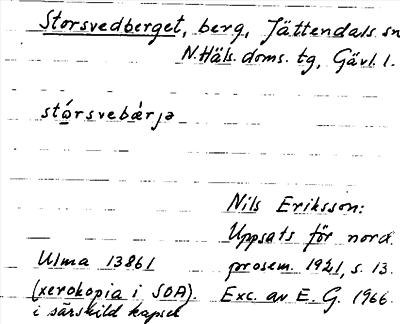 Storsvedberget, berg, Jättendals sn
N. Häls. doms. tg, Gävl. l.
stórsvebærjə
Nils Eriksson:
Uppsats för nord.
Ulma 13861 prosem. 1921, s. 13.
(xerokopia i SOA). Exc. av E. G. 1966.
i särskild kapsel